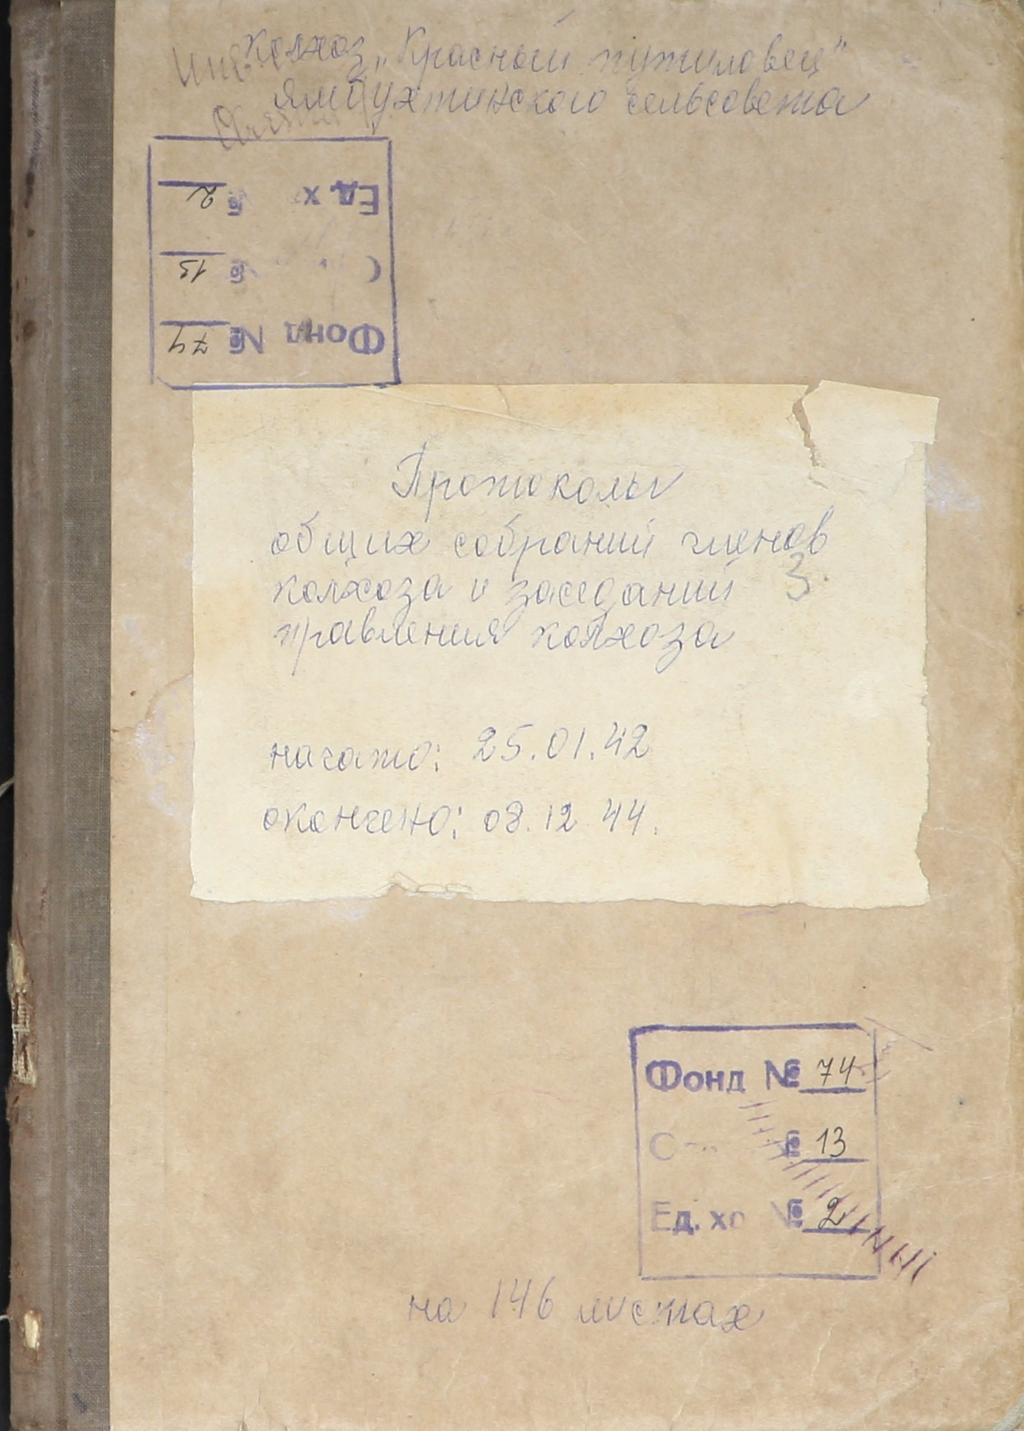 Колхоз „Красный путиловец"
Ямбухтинского сельсовета
Фонд № 74
№ 13
Ед. х № 2
Протоколы
общих собраний членов
колхоза и заседаний 3
правления колхоза
начато: 25.01.42
окончено: 08.12 44.
Фонд № 74
О № 13
Ед. хр № 2
на 146 листах